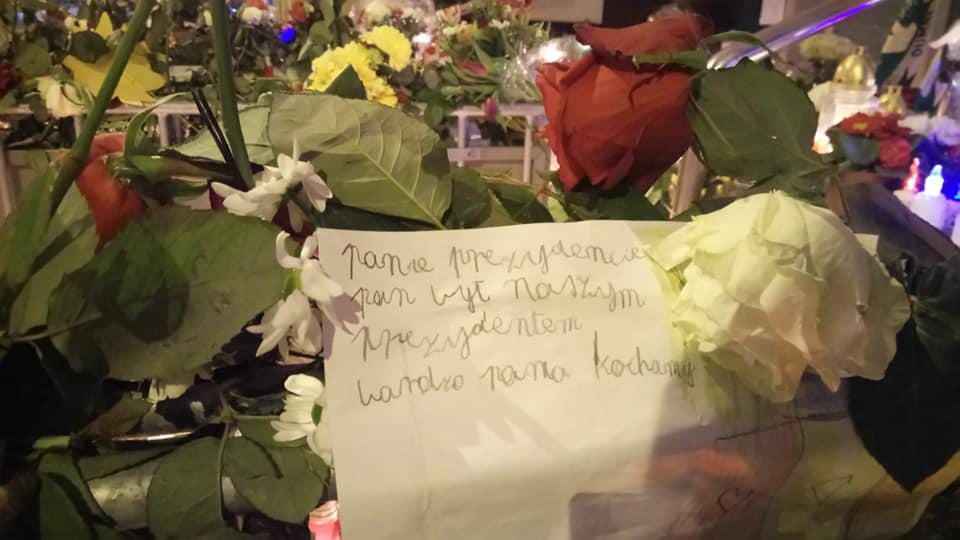 panie prezydencie
pan był naszym
prezydentem
bardzo pana kochamy